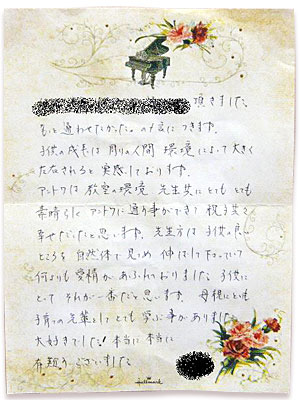 頂きました。
もっと通わせたかった。の一言につきます。
子供の成長は周りの人間、環境によって大きく
左右されると実感しております。
アントワは教室の環境、先生共にとてもとても
素晴らしく アントワに通う事ができて 親子共々
幸せだったと思います。先生方は子供の良い
ところを自然体で見つめ 伸ばして下さっていて
何よりも愛情があふれておりました。子供に
とって それが一番だと思います。母親にとっても
子育ての先輩としてとても学ぶ事がありました。
大好きでした! 本当に本当に
有難うございました。
Hallmark